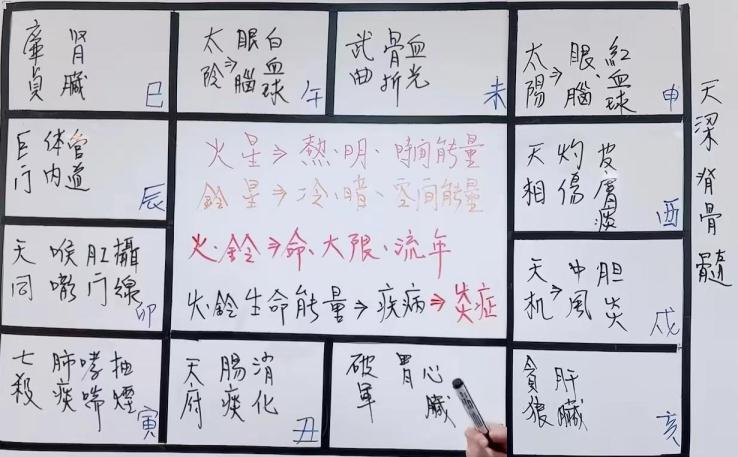 廉貞
腎臟
巳
太陰⇒
眼腦
白血球
午
武曲
骨折
血光
未
太陽⇒
眼、腦
紅血球
申
巨门
体内
管道
辰
火星⇒熱、明、時间能量
鈴星⇒冷、暗、空间能量
火、鈴⇒命、大限、流年
火、鈴生命能量⇒疾病⇒炎症
天相
灼傷
皮膚
酉
天同
喉嚨
肛门
攝線
卯
天机⇒
中風
胆炎
戌
七殺
肺痰
哮喘
抽煙
寅
天府
腸痰
消化
丑
破軍
胃
心臟
貪狼
肝臟
亥
天梁脊骨髓